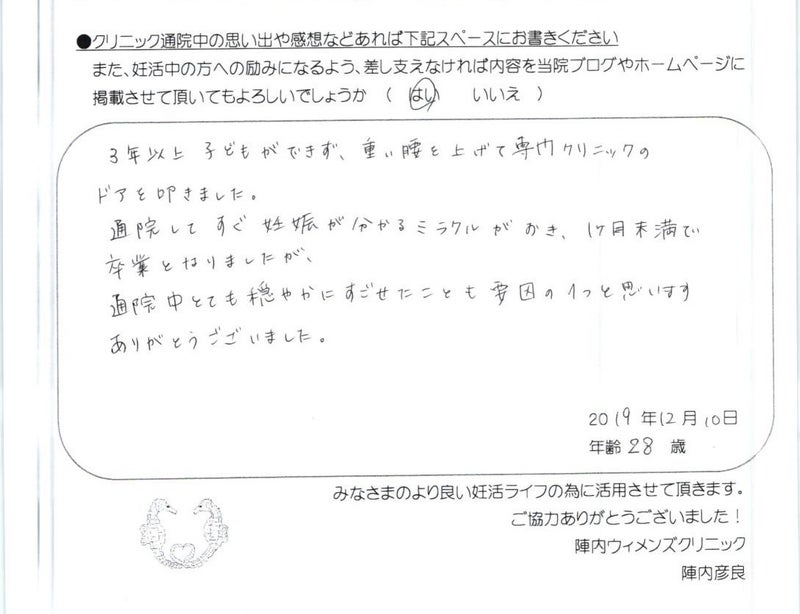 ●クリニック通院中の思い出や感想などあれば下記スペースにお書きください
また、妊活中の方への励みになるよう、差し支えなければ内容を当院ブログやホームページに
掲載させて頂いてもよろしいでしょうか （ はい いいえ ）
3年以上 子どもができず、重い腰を上げて専門クリニックの
ドアを叩きました。
通院してすぐ 妊娠が分かるミラクルがおき、1ヶ月未満で
卒業となりましたが、
通院中とても穏やかにすごせたことも要因の1つと思います
ありがとうございました。
2019年12月10日
年齢 28 歳
みなさまのより良い妊活ライフの為に活用させて頂きます。
ご協力ありがとうございました！
陣内ウィメンズクリニック
陣内彦良